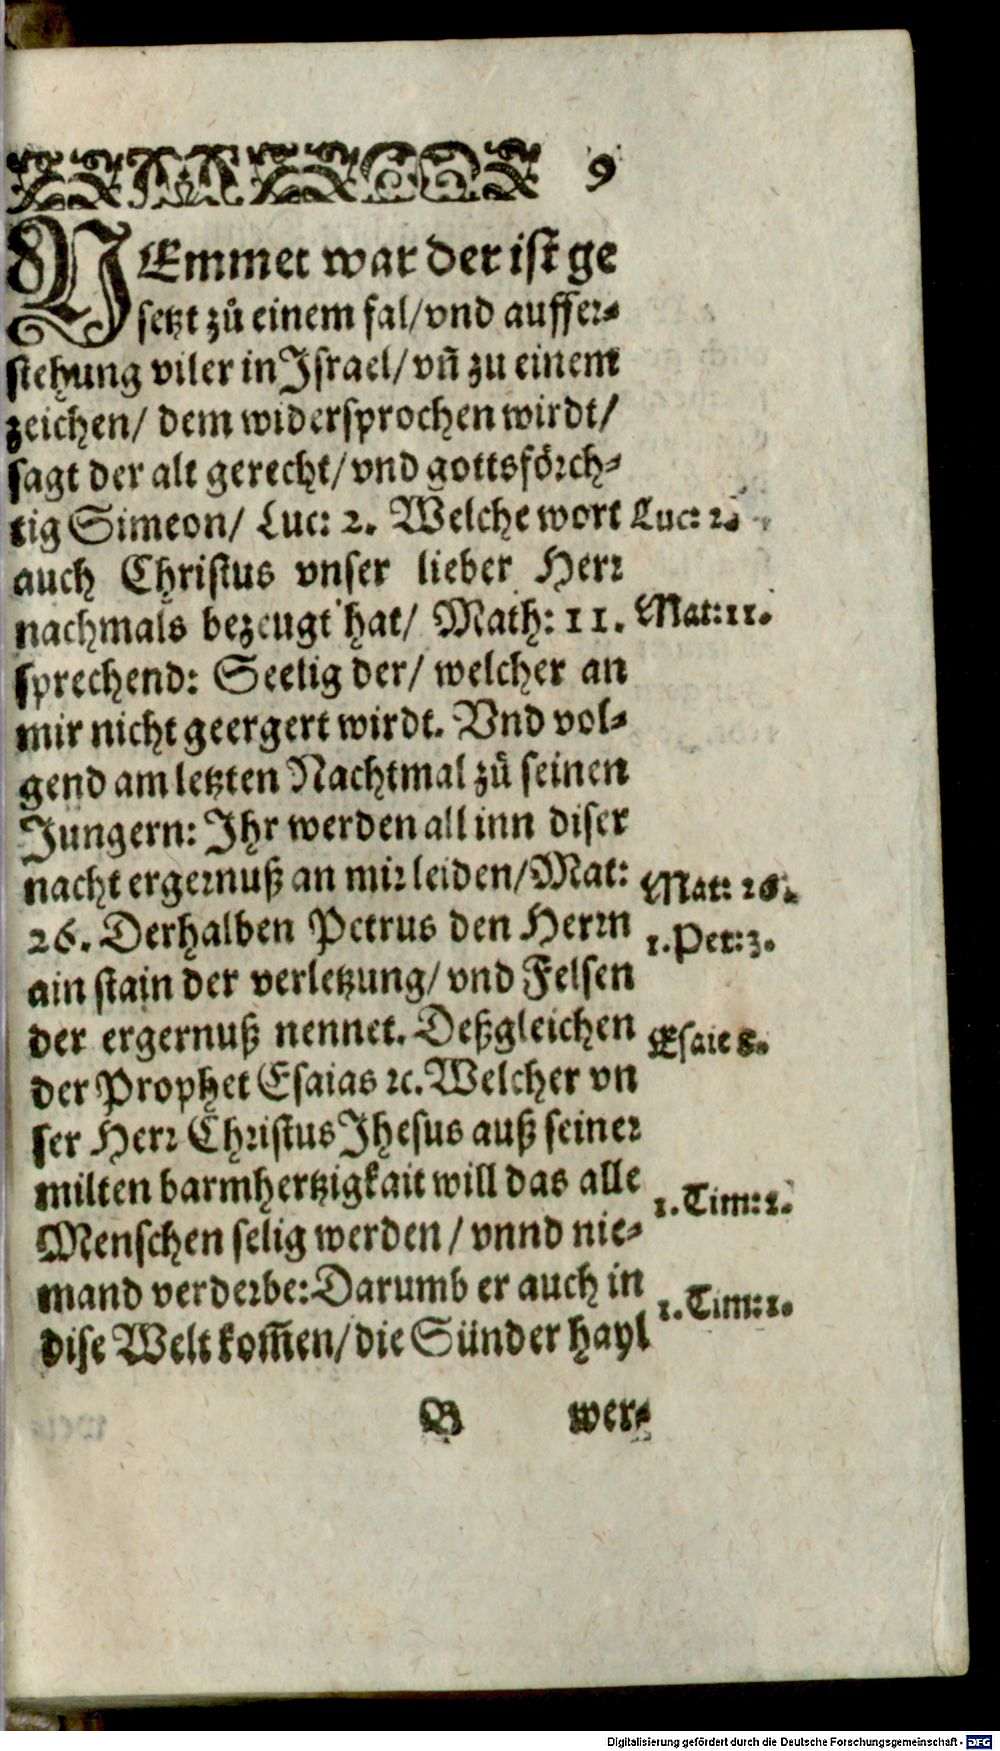 9
NEmmet war der ist ge
setzt zů einem fal/vnd auffer⸗
stehung viler in Israel/ vñ zu einem
zeichen/ dem widersprochen wirdt/
sagt der alt gerecht/ vnd gottsförch⸗
tig Simeon/ Luc: 2. Welche wort
Luc: 2.
auch Christus vnser lieber Herr
nachmals bezeugt hat/ Math: 11.
Mat: 11.
sprechend: Seelig der/ welcher an
mir nicht geergert wirdt. Vnd vol⸗
gend am letzten Nachtmal zů seinen
Jungern: Jhr werden all inn diser
nacht ergernuß an mir leiden/Mat:
Mat: 26.
26. Derhalben Petrus den Herrn
1. Pet: 3.
ain stain der verletzung/ vnd Felsen
der ergernuß nennet. Deßgleichen
Esaie 8.
der Prophet Esaias ꝛc. Welcher vn
ser Herr Christus Jhesus auß seiner
milten barmhertzigkait will das alle
1. Tim: 2.
Menschen selig werden / vnnd nie⸗
mand verderbe: Darumb er auch in
1. Tim: 1.
dise Welt kom̃en/ die Sünder hayl
B wer⸗
Digitalisierung gefördert durch die Deutsche Forschungsgemeinschaft - DFG